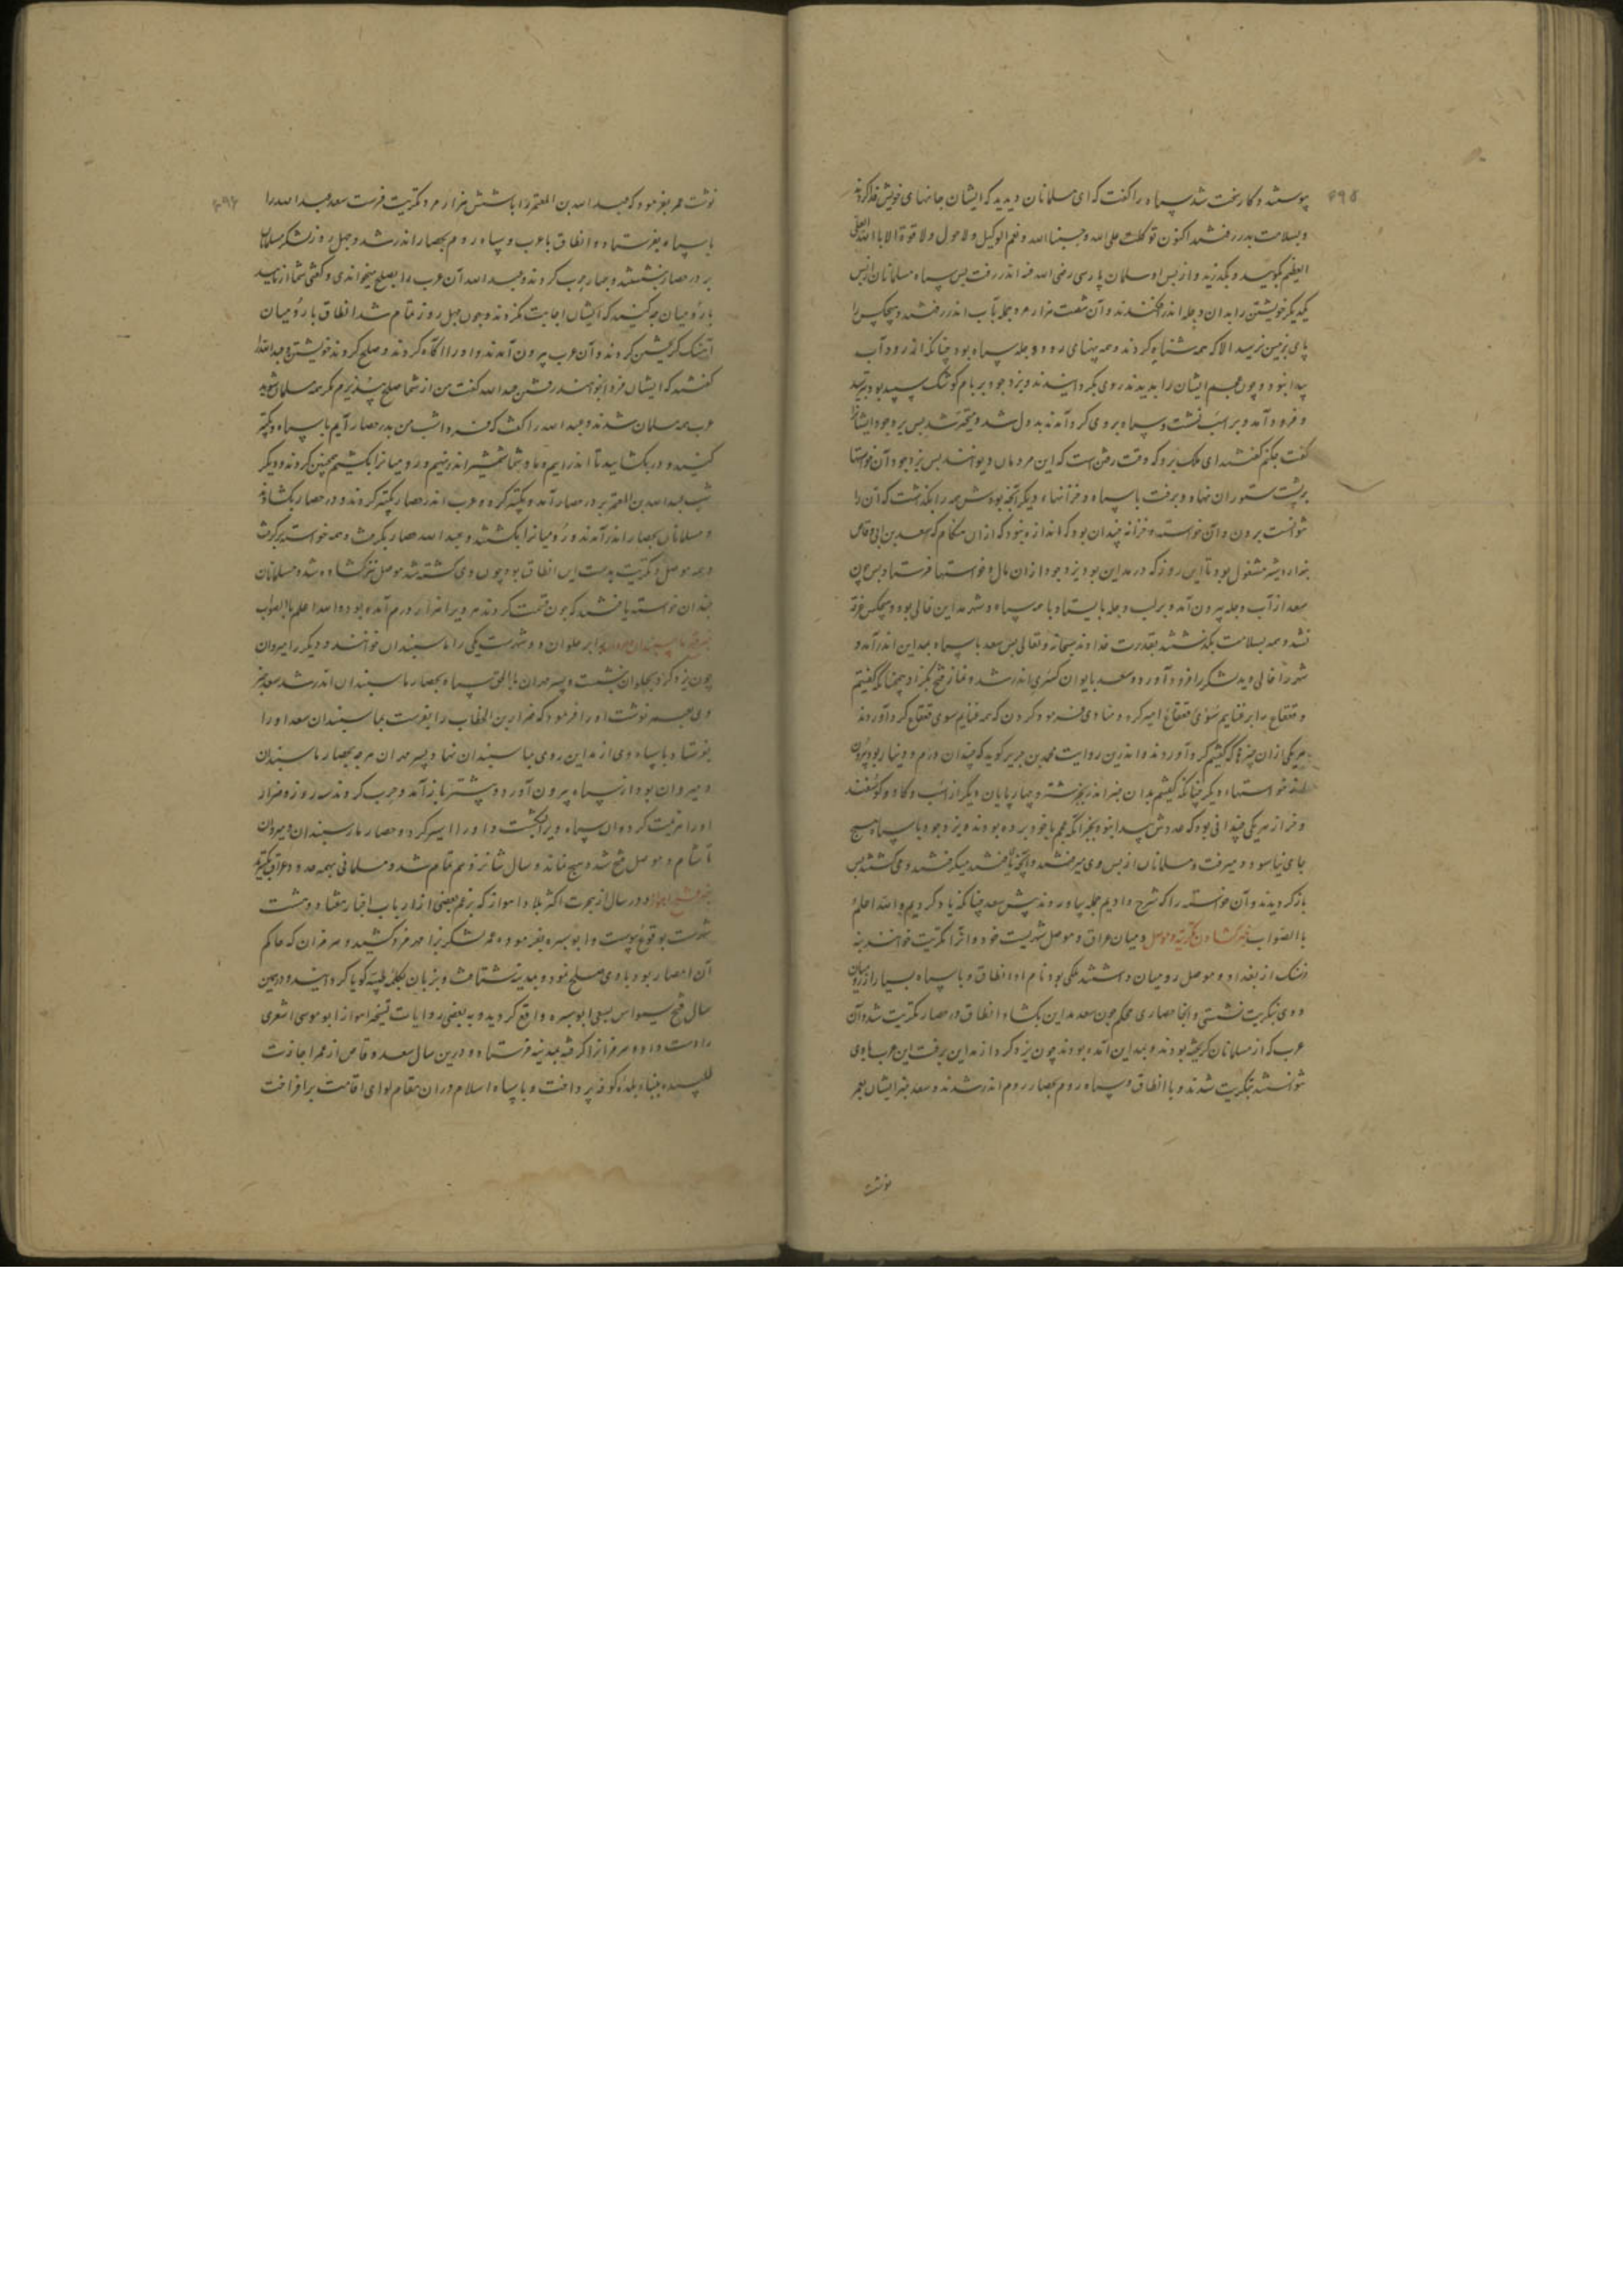 پیوستند و کار سخت شد سپاه را گفت که ای مسلمانان دیدید که ایشان جانهای خویش فدا کردند
و بسلامت بدر رفتند اکنون توکلت علی الله و حسبنا الله و نعم الوکیل و لا حول و لا قوة الا بالله العلی
العظیم بگویید و بگذرید و از پس او سلمان پارسی رضی الله عنه اندر رفت پس سپاه مسلمانان از پس
یکدیگر خویشتن را بدان دجله اندر افکندند و آن شصت هزار مرد جمله بآب اندر رفتند و هیچکس را
پای بزمین نرسید الا که همه شناه کردند و همه پهنای رود دجله سپاه بود چنانکه از رود آب
پیدا نبود و چون عجم ایشان را بدیدند روی بگردانیدند و یزدجود بر بام کوشک سپید بود بترسید
و فرود آمد و بر اسب نشست و سپاه بر وی گرد آمدند بددل شد و متحیر شد پس یزدجود ایشانرا
گفت چکنم گفتند ای ملک برو که وقت رفتن است که این مردمان دیوانند پس یزدجود آن خواستها
بر پشت ستوران نهاد و برفت با سپاه و خزانهاء دیگر آنچه بودش همه را بگذاشت که آن را
نتوانست بردن و آن خواسته و خزانه چندان بود که اندازه نبود که از آن هنگام که سعد بن ابی وقاص
مشغول بود تا این روز که در مداین بود یزدجود از آن مال و خواستها فرستاد پس چون
سعد از آب دجله بیرون آمد و بر لب دجله بایستاد با همه سپاه و شهر مداین خالی بود و هیچکس غرق
نشد و همه بسلامت بگذشتند بقدرت خداوند سبحانه و تعالی پس سعد با سپاه بمداین اندر آمد و
شهر را خالی دید لشکر را فرود آورد و سعد بایوان کسری اندر شد و نماز فتح بگزارد چنانکه گفتیم
و قعقاع را بر غنایم امیر کرد و منادی فرمود کردن که همه غنایم سوی قعقاع گرد آوردند
هر یکی از آن چیزها که گفتیم گرد آوردند و اندرین روایت محمد بن جریر گوید که چندان درم و دینار بود بیرون
از خواستهاء دیگر چنانکه گفتیم بدان خبر اندر بجز شتر و چهارپایان دیگر از اسب و گاو و گوسفند
و خر از هر یکی چندانی بود که عددش پیدا نبود بجز آنکه عجم با خود برده بودند و یزدجود با سپاه هیچ
جای نیاسود و میرفت و مسلمانان از پس وی میرفتند و آنچه یافتند میگرفتند و می کشتند پس
باز گردیدند و آن خواسته را که شرح دادیم جمله بیاوردند پیش سعد چنانکه یاد کردیم والله اعلم
بالصواب خبر گشادن تکریت و موصل و میان عراق و موصل شهریست خرد و آنرا تکریت خوانند
از بغداد و موصل رومیان داشتند ملکی بود نام او انطاق و با سپاه بسیار از رومیان
و وی بتکریت نشستی و آنجا حصاری محکم چون سعد مداین بگشاد انطاق در حصار تکریت شد و آن
عرب که از مسلمانان گریخته بودند و بمداین آمده بودند چون یزدگرد از مداین برفت این عرب با وی
نتوانستند بتکریت شدند و با انطاق و سپاه روم بحصار روم اندر شدند و سعد خبر ایشان بعمر
نوشت
نوشت عمر بفرمود که عبدالله بن المعتمر را با شش هزار مرد بتکریت فرست سعد عبدالله را
با سپاه بفرستاد و انطاق با عرب و سپاه روم بحصار اندر شد و چهل روز لشکر مسلمانان
بر در حصار بنشستند و حرب کردند و عبدالله آن عرب را بصلح میخواندی و گفتی شما از
با رومیان چه کنید که ایشان اجابت نکردند و چون چهل روز تمام شد انطاق با رومیان
آهنگ گریختن کردند و آن عرب بیرون آمدند و او را آگاه کردند و صلح کردند خویشتن و عبدالله را
گفتند که ایشان فردا بخواهند رفتن عبدالله گفت من از شما صلح نپذیرم مگر همه مسلمان شوید
عرب همه مسلمان شدند و عبدالله را گفت که امشب من بدر حصار آیم با سپاه و تکبیر
کنید و در بگشایید تا اندر آییم و ما و شما شمشیر اندر نهیم و رومیانرا بکشیم همچنین کردند و دیگر
شب عبدالله بن المعتمر بر در حصار آمد و تکبیر کرد و عرب اندر حصار تکبیر کردند و در حصار بگشادند
و مسلمانان بحصار اندر آمدند و رومیانرا بکشتند و عبدالله حصار بگرفت و همه خواسته برگرفت
و همه موصل و تکریت بدست این انطاق بود چون وی کشته شد موصل نیز گشاده شد و مسلمانان
چندان خواسته یافتند که چون قسمت کردند هر مردی را هزار درم آمده بود والله اعلم بالصواب
برابر حلوان دو شهرست یکی را ماسبندان خوانند و دیگر را میروان
چون یزدگرد بحلوان بنشست و پسر مهران با سپاه بحصار ماسبندان اندر شد سعد خبر
وی بعمر نوشت او را فرمود که ضرار بن الخطاب را بفرست بماسبندان سعد او را
بفرستاد با سپاه وی از مداین روی بماسبندان نهاد پسر مهران هر چه بحصار ماسبندان
و میروان بود از سپاه بیرون آورد و پیشتر باز آمد و حرب کردند سه روز و ضرار
او را هزیمت کرد و آن سپاه ویرا بکشت و او را اسیر کرد و حصار ماسبندان و میروان
تا شام و موصل فتح شد و هیچ نماند و سال شانزدهم تمام شد و مسلمانی بهمه حدود عراق بگسترد
در سال از هجرت اکثر بلاد اهواز که بزعم بعضی از ارباب اخبار هفتاد و هشت
شهرست بوقوع پیوست و ابوسبره بفرموده عمر لشکر بدانحدود کشید و هرمزان که حاکم
آن امصار بود با وی صلح نمود و بمدینه شتافت و زبان بکلمه طیبه گویا گردانید و در همین
سال فتح سوس بسعی ابوسبره واقع گردید و به بعضی روایات تسخیر اهواز ابو موسی اشعری
را دست داد و هرمزانرا گرفته بمدینه فرستاد و درین سال سعد وقاص از عمر اجازت
طلبیده ببناء بلده کوفه پرداخت و با سپاه اسلام در آن مقام لوای اقامت برافراخت